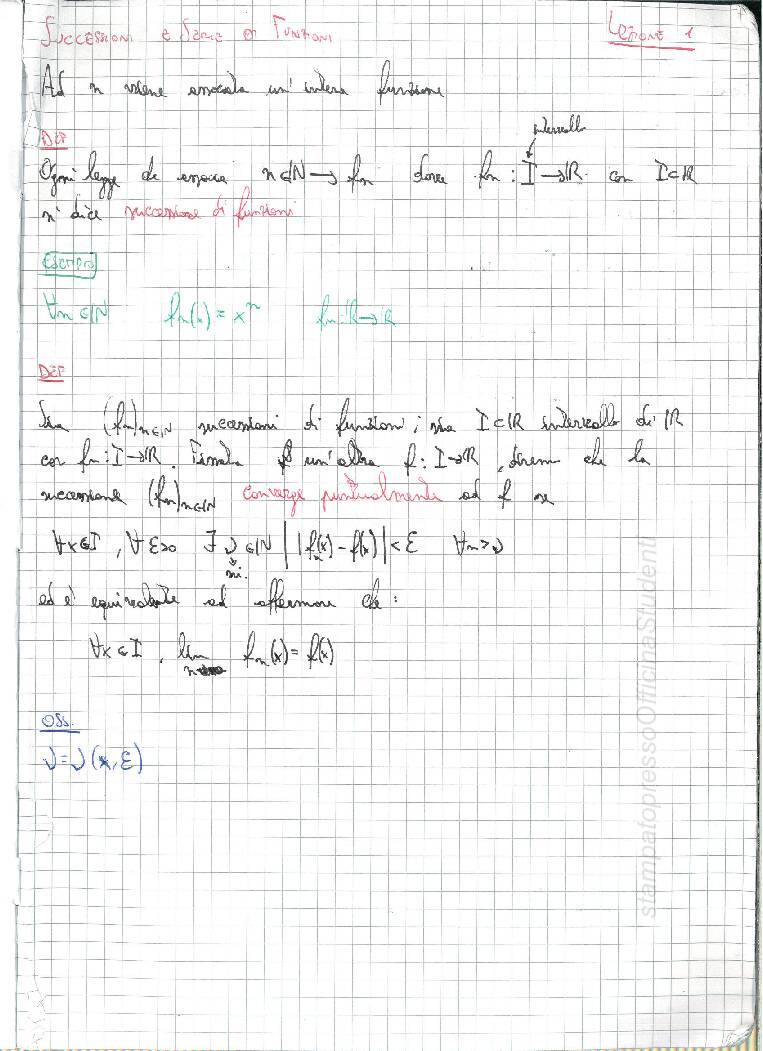 SUCCESSIONI E SERIE DI FUNZIONI
LEZIONE 1
Ad n viene associata un'intera funzione
DEF
intervallo
Ogni legge che associa n∈ℕ → fn dove fn : I → ℝ con I⊂ℝ
si dice successione di funzioni
ESEMPIO
∀n∈ℕ fn(x) = xⁿ fn: ℝ→ℝ
DEF
Sia (fn)n∈ℕ successioni di funzioni ; sia I⊂ℝ intervallo di ℝ
con fn: I→ℝ. Fissata un'altra f: I→ℝ, diremo che la
successione (fn)n∈ℕ converge puntualmente ad f se
∀x∈I , ∀ε>0 ∃ ν∈ℕ | |fn(x) - f(x)| < ε ∀n>ν
ni.
ed è equivalente ad affermare che :
∀x∈I , lim fn(x) = f(x)
n→∞
OSS.
ν=ν(x,ε)
stampatopressoOfficinaStudenti